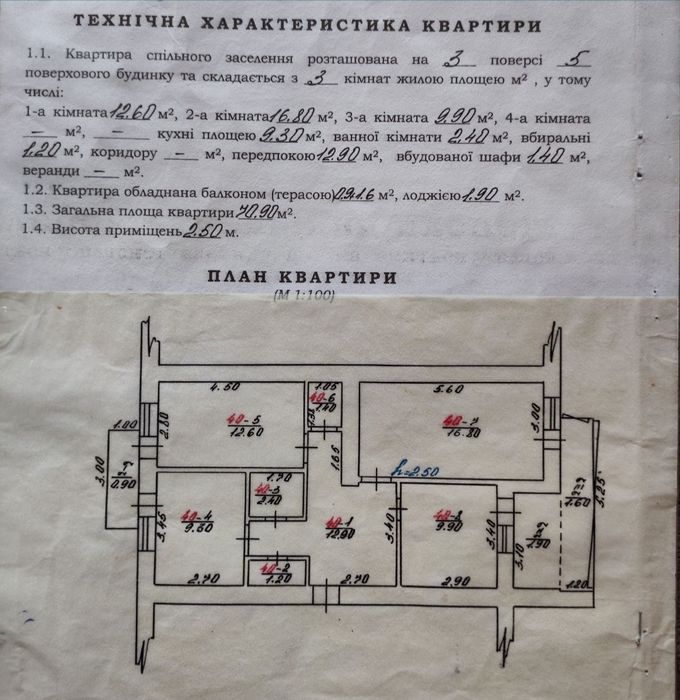 ТЕХНІЧНА ХАРАКТЕРИСТИКА КВАРТИРИ
1.1. Квартира спільного заселення розташована на 3 поверсі 5
поверхового будинку та складається з 3 кімнат жилою площею м², у тому
числі:
1-а кімната 12.60 м², 2-а кімната 16.80 м², 3-а кімната 9.90 м², 4-а кімната
– м², – кухні площею 9.30 м², ванної кімнати 2.40 м², вбиральні
1.20 м², коридору – м², передпокою 12.90 м², вбудованої шафи 1.40 м²,
веранди – м².
1.2. Квартира обладнана балконом (терасою) 0.9 1.6 м², лоджією 1.90 м².
1.3. Загальна площа квартири 70.90 м².
1.4. Висота приміщень 2.50 м.
ПЛАН КВАРТИРИ
(М 1:100)
4.50
1.05
5.60
40-6
1.40
40-5
12.60
40-7
16.80
2.80
3.00
1.00
1.65
h=2.50
3.00
0.90
1.70
40-3
2.40
3.45
40-4
40-1
12.90
3.40
9.90
3.40
1.60
3.25
3.10
1.90
40-2
1.20
2.70
2.70
2.90
1.20